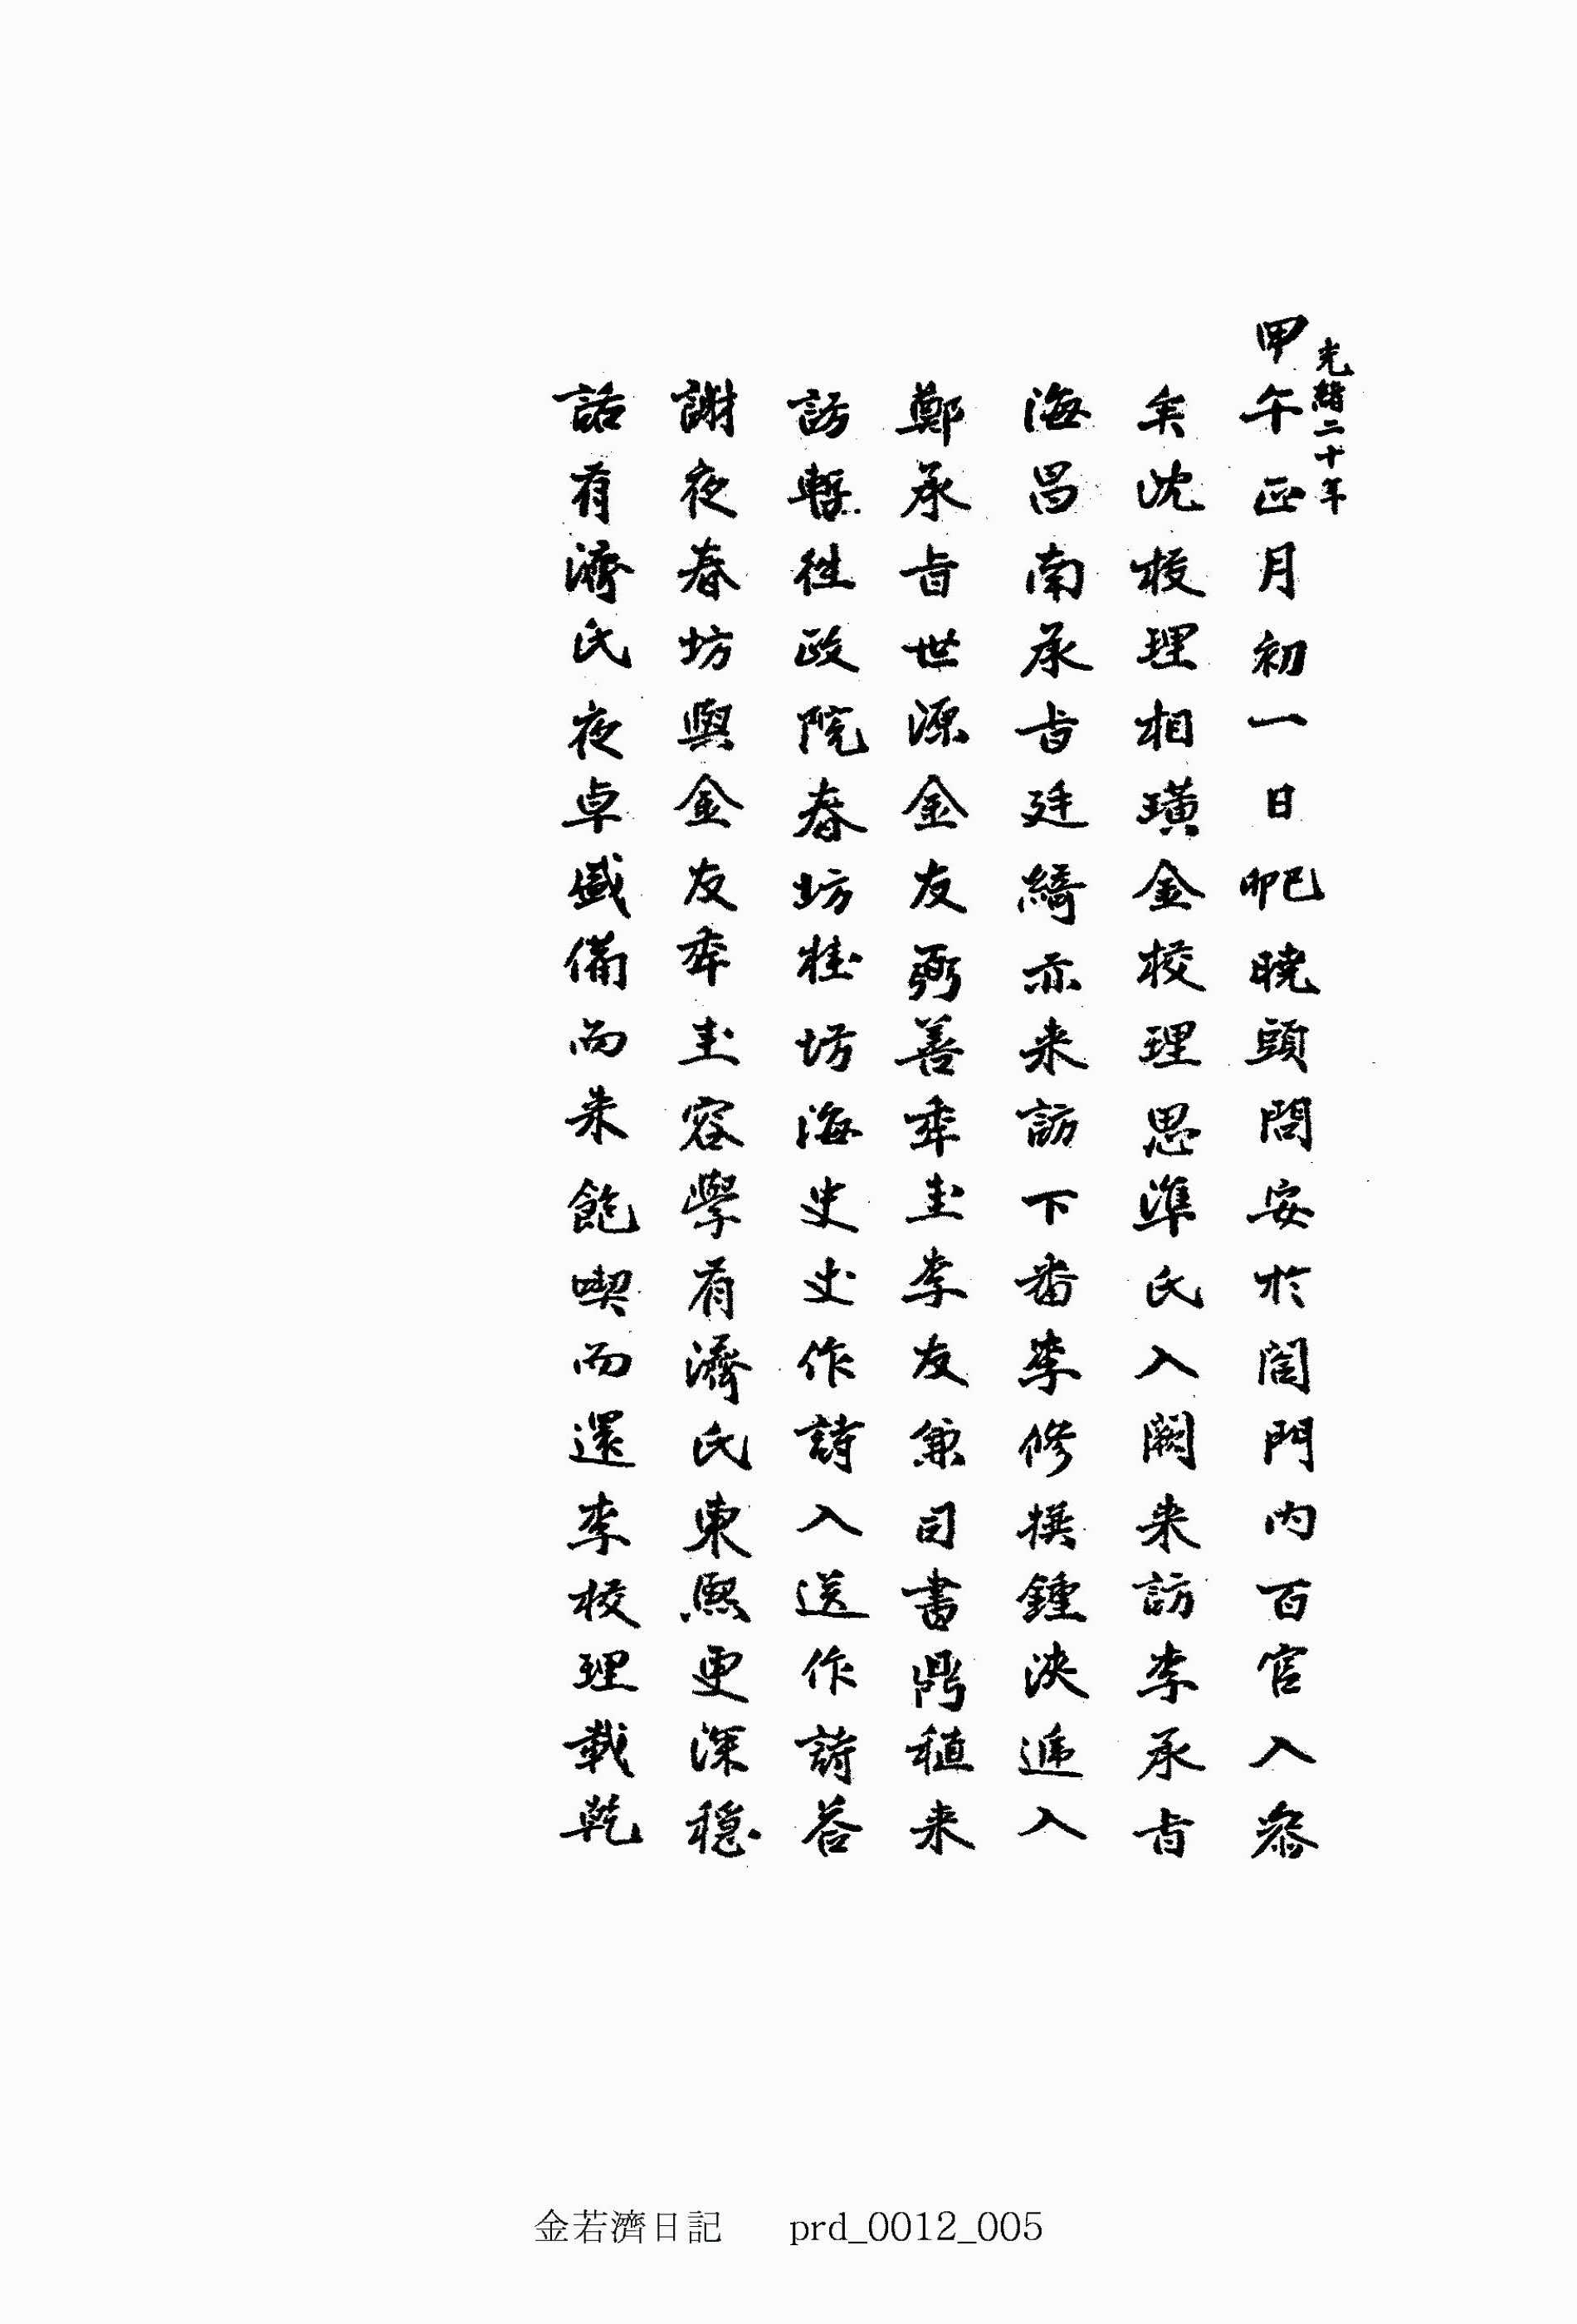 光緖二十年
甲午正月初一日 卯巳 曉頭問安於閤門內百官入參
矣沈校理相璜金校理思準氏入闕来訪李承旨
海昌南承旨廷綺亦来訪下番李修撰鍾浹遞入
鄭承旨世源金友弼善奉圭李友兼司書鼎稙来
訪暫徃政院春坊桂坊海史史作詩入送作詩荅
謝夜春坊與金友奉圭容學有濟氏東熙更深穩
話有濟氏夜卓盛備而来飽喫而還李校理載乾
金若濟日記 prd_0012_005